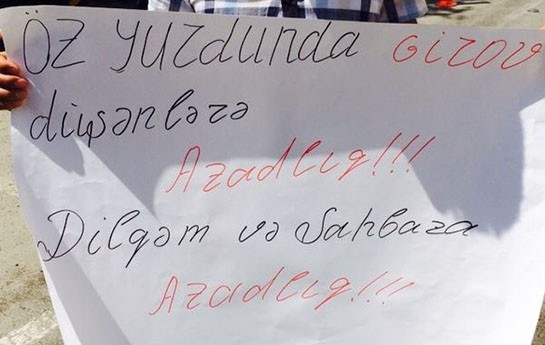 Öz yurdunda Girov
düşənlərə
Azadlıq!!!
Dilqəm və Şahbaza
Azadlıq!!!